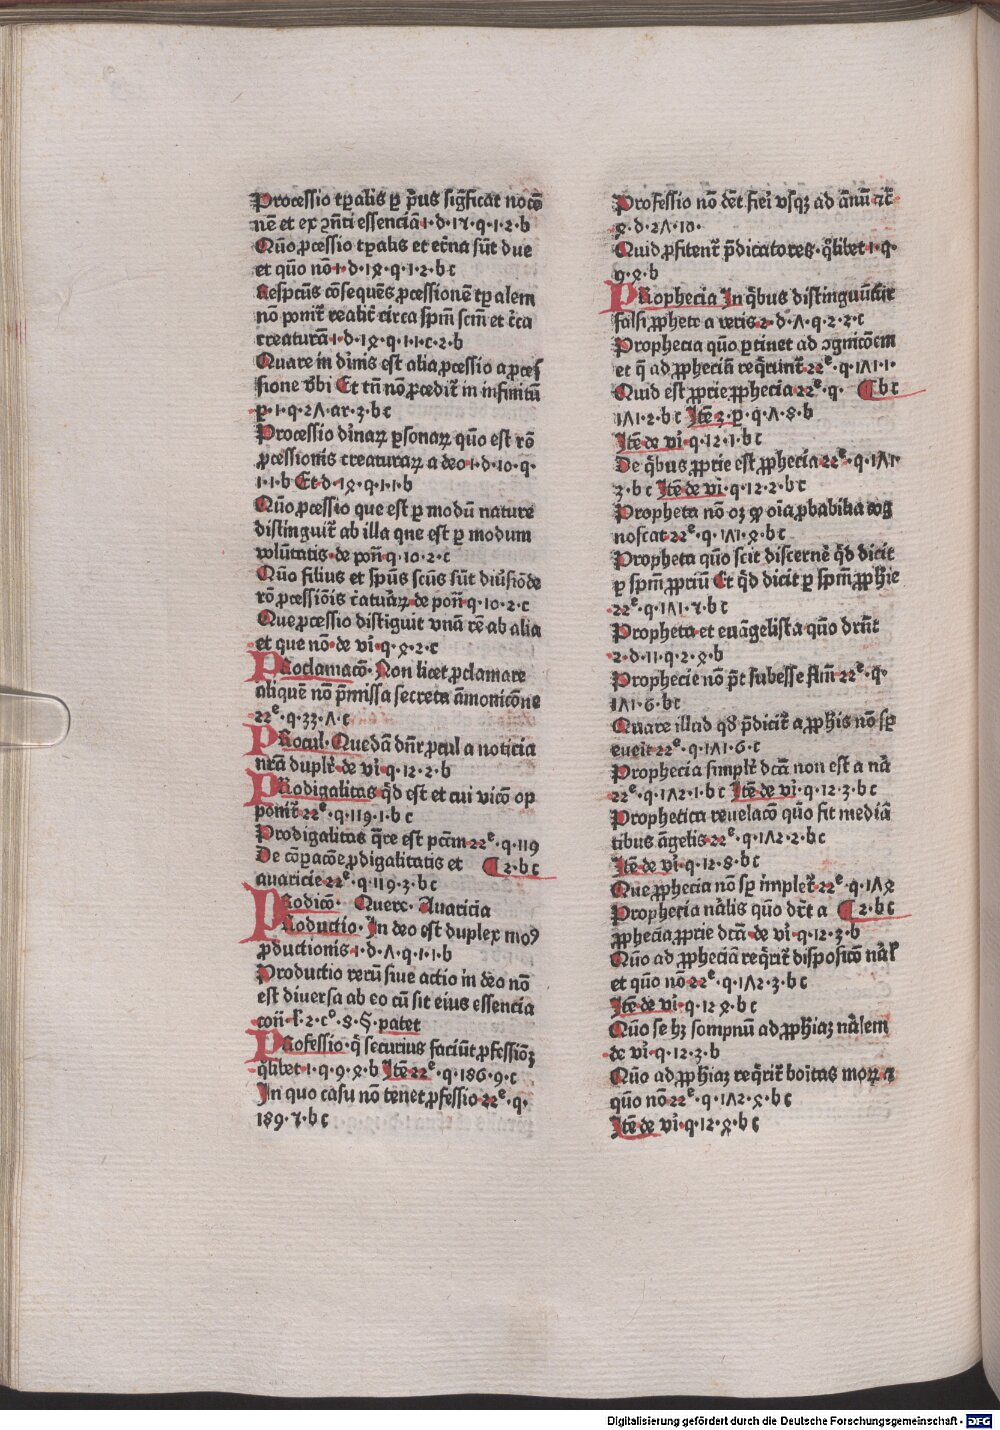 Processio tꝑalis ꝑ pͥus sigͣficat nocō
nē et ex ꝯn̄ti essenciā·1·d·14·q·1·2·b
Quō ꝓcessio tꝑalis et et̄na sūt due
et quō nō·1·d·18·q·1·2·b c
Respcūs cōsequēs ꝓcessionē tꝑalem
nō ponit̄ realit̄ circa sp̄m scm̄ et c̄ca
creaturā·1·d·18·q·1·1·c·2·b
Quare in diīnis est alia ꝓcessio a ꝓces
sione v̄bi Et tn̄ nō ꝓcedit̄ in infinitū
ꝑ·1·q·27·ar·3·b c
Processio diīnaꝝ ꝑsonaꝝ quō est rō
ꝓcessionis creaturaꝝ a deo·1·d·10·q·
1·1·b Et·d·18·q·1·1·b
Quō ꝓcessio que est ꝑ modū nature
distinguit̄ ab illa que est ꝑ modum
volūtatis·de pon̄·q·10·2·c
Quō filius et sp̄us scūs sūt diuīsiōde
rō ꝓcessiōis c̄atuāꝝ·de pon̄·q·10·2·c
Que ꝓcessio distiguit vnā rē ab alia
et que nō·de vī·q·8·2·c
PRoclamacō· Non licet ꝓclamare
aliquē nō p̄missa secreta āmonicōne
22ͤ·q·33·7·c
PRocul·Quedā dn̄r ꝓcul a noticia
nr̄a duplr̄·de vī·q·12·2·b
PRodigalitas qͥd est et cui vicō op
ponit̄ 22ͤ·q·119·1·b c
Prodigalitas qͣre est pcm̄ 22ͤ·q·119
De cōꝑacōe ꝓdigalitatis et ¶ 2·b c
auaricie 22ͤ·q·119·3·b c
PRodicō· Quere· Auaricia
PRoductio·In deo est duplex moꝯ
ꝓductionis·1·d·7·q·1·1·b
Productio rerū siue actio in deo nō
est diuersa ab eo cū sit eius essencia
con̄·l̄·2·c°·8·§·patet
PRofessio·qͥ securius faciūt ꝓfessiōꝫ
qͦlibet·1·q·9·8·b Itē 22ͤ·q·186·9·c
In quo casu nō tenet ꝓfessio 22ͤ·q·
189·4·b c
Professio nō dꝫt fieī vsqꝫ ad ānū ⁊c̄
8·d·27·10·
Quid ꝓfitent̄ p̄dicatores·qͦlibet·1·q·
9·8·b
PRophecia In qͥbus distinguūtur
falsi ꝓphete a veris·2·d·7·q·2·2·c
Prophecia quō ꝑtinet ad ꝯgnicōem
et q̄ ad ꝓpheciā reqͥrunt̄ 22ͤ·q·171·1·
Quid est ꝓprie ꝓphecia 22ͤ·q· ¶ b c
171·2·b c Itē 3·ꝑ·q·7·8·b
Itē de vī·q·12·1·b c
De qͥbus ꝓprie est ꝓphecia 22ͤ·q·171·
3·b c Itē de vī·q·12·2·b c
Propheta nō oꝫ qꝙ oīa ꝓbabilia cog
noscat 22ͤ·q·171·8·b c
Propheta quō scit discernē qͥd dicit
ꝑ sp̄m ꝓpriū Et qͥd dicit ꝑ sp̄m ꝓph̄ie
·22ͤ·q·171·4·b c
Propheta et euāgelista quō drn̄t
2·d·11·q·2·8·b
Prophecie nō p̄t subesse flm̄ 22ͤ·q·
171·6·b c
Quare illud qd̄ p̄dicit̄ a ꝓph̄is nō sꝑ
eueit 22ͤ·q·171·6·c
Prophecia simplr̄ dcā non est a nā
22ͤ·q·172·1·b c Itē de vī·q·12·3·b c
Prophetica reuelacō quō fit mediā
tibus āgelis 22ͤ·q·172·2·b c
Itē de vī·q·12·8·b c
Que ꝓphecia nō sꝑ implet̄ 22ͤ·q·178
Prophecia nālis quō dr̄t a ¶ 2·b c
ꝓphecia ꝓprie dcā·de vī·q·12·3·b
Quō ad ꝓpheciā reqͥrit̄ disposicō nāl
et quō nō 22ͤ·q·172·3·b c
Itē de vī·q·12 8·b c
Quō se hꝫ sompnū ad ꝓph̄iaꝫ nālem
de vī·q·12·3·b
Quō ad ꝓph̄iaꝫ reqͥrit̄ boītas moꝝ ⁊
quō nō 22ͤ·q·172·8·b c
Itē de vī·q·12·8·b c
Digitalisierung gefördert durch die Deutsche Forschungsgemeinschaft - DFG